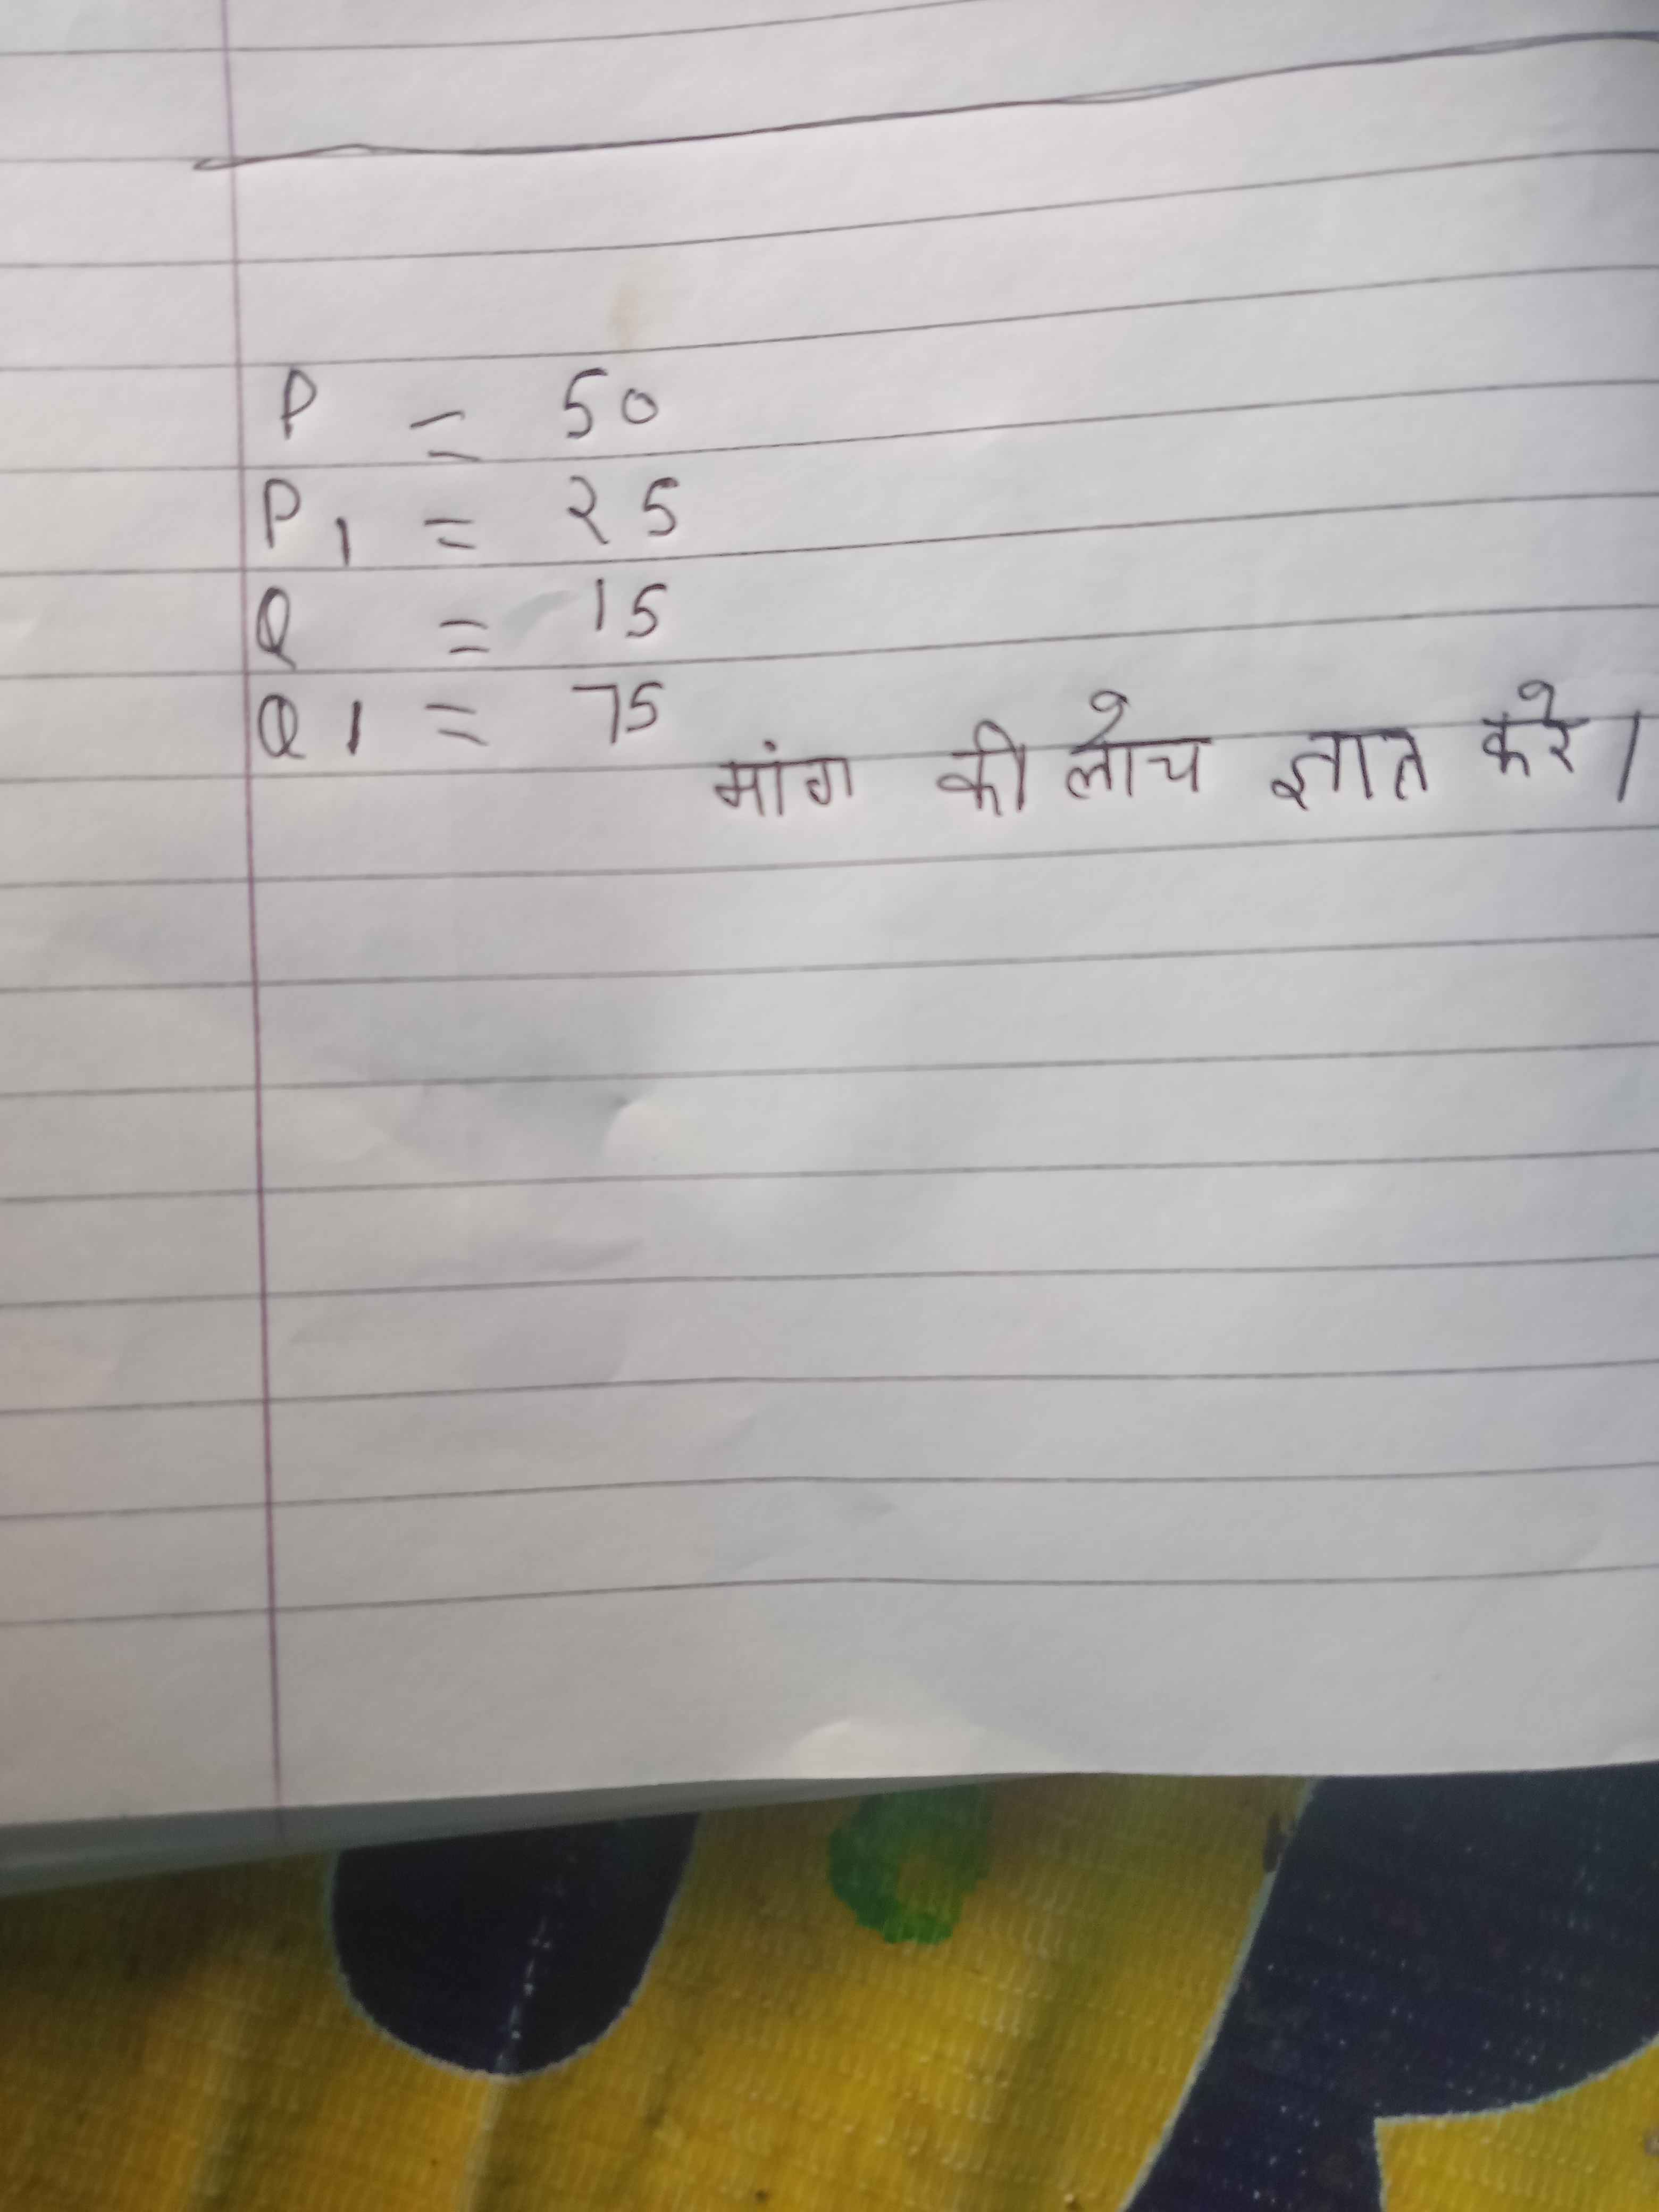 P = 50
P1 = 25
Q = 15
Q1 = 75
मांग की लोच ज्ञात करे।